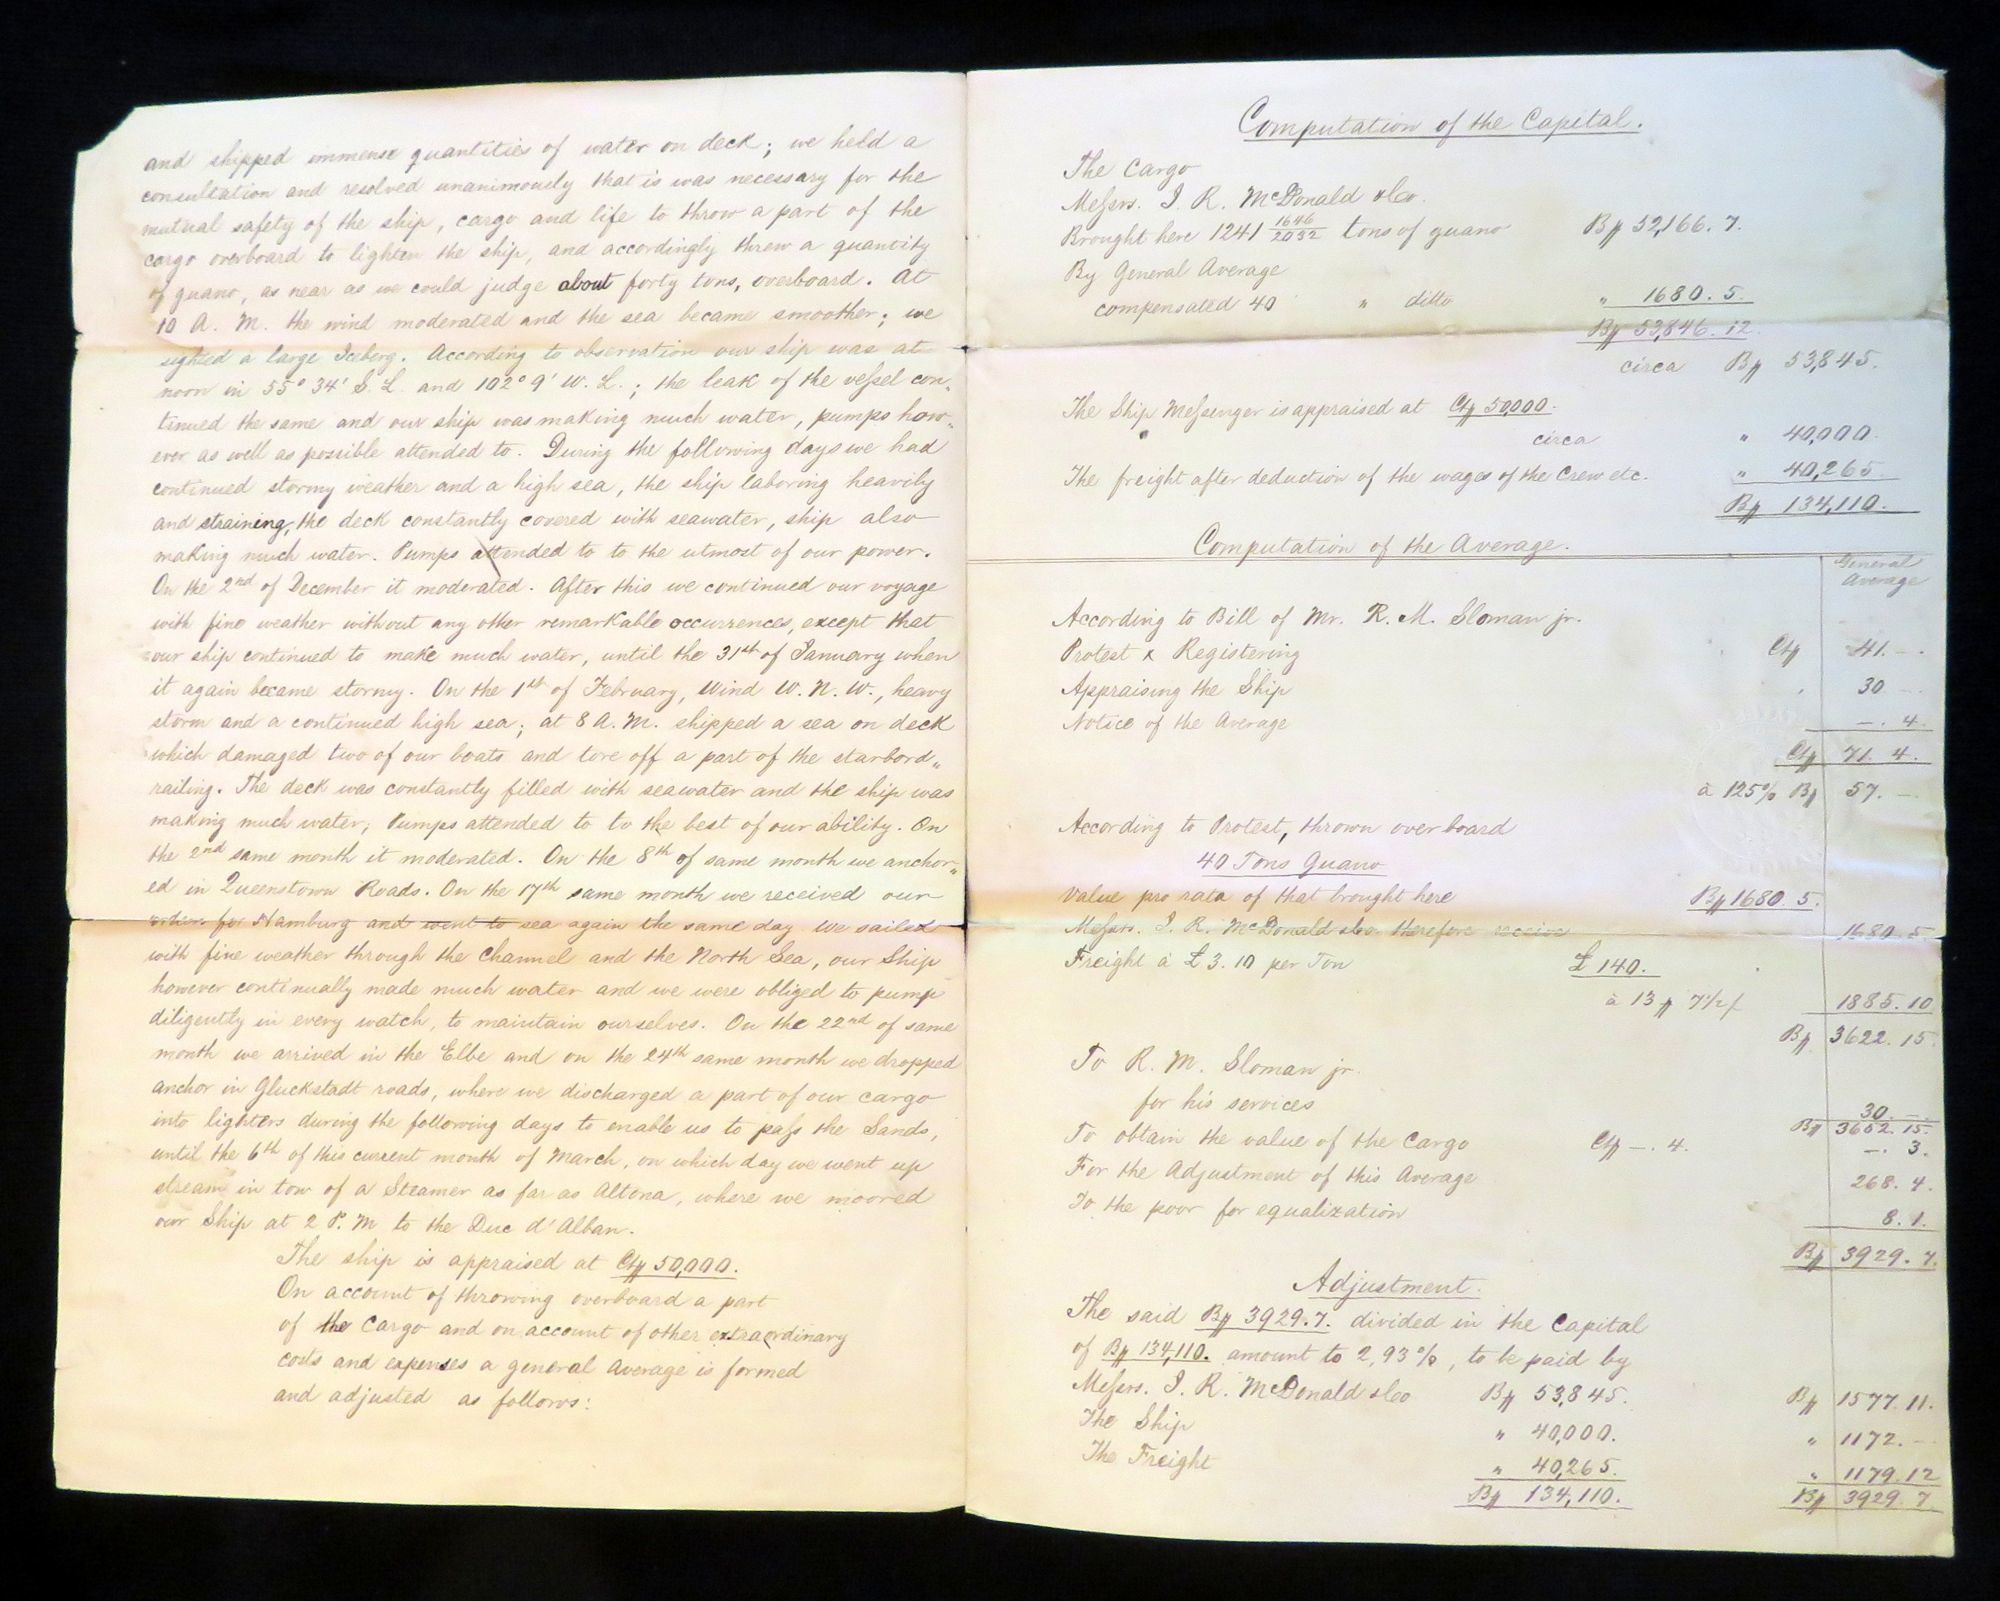 and shipped immense quantities of water on deck; we held a
consultation and resolved unanimously that is was necessary for the
mutual safety of the ship, cargo and life to throw a part of the
cargo overboard to lighten the ship, and accordingly threw a quantity
of guano, as near as we could judge about forty tons, overboard. At
10 A. M. the wind moderated and the sea became smoother; we
sighted a large Iceberg. According to observation our ship was at
noon in 55° 34' S. L. and 102° 9' W. L.; the leak of the vessel con„
tinued the same and our ship was making much water, pumps how„
ever as well as possible attended to. During the following days we had
continued stormy weather and a high sea, the ship laboring heavily
and straining, the deck constantly covered with seawater, ship also
making much water. Pumps attended to to the utmost of our power.
On the 2nd of December it moderated. After this we continued our voyage
with fine weather without any other remarkable occurrences, except that
our ship continued to make much water, until the 31st of January when
it again became stormy. On the 1st of February, Wind W. N. W., heavy
storm and a continued high sea; at 8 A. M. shipped a sea on deck
which damaged two of our boats and tore off a part of the starbord„
railing. The deck was constantly filled with seawater and the ship was
making much water; Pumps attended to to the best of our ability. On
the 2nd same month it moderated. On the 8th of same month we anchor„
ed in Queenstown Roads. On the 17th same month we received our
orders for Hamburg and went to sea again the same day. We sailed
with fine weather through the Channel and the North Sea, our Ship
however continually made much water and we were obliged to pump
diligently in every watch, to maintain ourselves. On the 22nd of same
month we arrived in the Elbe and on the 24th same month we dropped
anchor in Gluckstadt roads, where we discharged a part of our cargo
into lighters during the following days to enable us to pass the Sands,
until the 6th of this current month of March, on which day we went up
stream in tow of a Steamer as far as Altona, where we moored
our Ship at 2 P. M to the Duc d'Alban.
The ship is appraised at Ct㎖ 50,000.
On account of throwing overboard a part
of the Cargo and on account of other extraordinary
costs and expenses a general Average is formed
and adjusted as follows:
Computation of the Capital.
The Cargo
Messrs. J. R. McDonald & Co.
Brought here 1241 1646/2032 tons of guano B㎖ 52,166. 7.
By General Average
compensated 40 " ditto " 1680. 5.
B㎖ 53,846. 12
circa B㎖ 53,845.
The Ship Messenger is appraised at Ct㎖ 50,000.
circa " 40,000.
The freight after deduction of the wages of the Crew etc. " 40,265.
B㎖ 134,110.
Computation of the Average.
General
Average
According to Bill of Mr. R. M. Sloman jr.
Protest & Registering Ct㎖ 41. -.
Appraising the Ship 30 -.
Notice of the Average -. 4.
Ct㎖ 71. 4.
à 125% B㎖ 57. -
According to Protest, thrown overboard
40 Tons Guano
Value pro rata of that brought here B㎖ 1680. 5.
Messrs. J. R. McDonald & Co. therefore receive 1680. 5
Freight à £ 3. 10 per Ton £ 140.
à 13㎖ 7½ ƒ 1885. 10
B㎖ 3622. 15.
To R. M. Sloman jr.
for his services 30. -.
B㎖ 3652. 15.
To obtain the value of the Cargo Ct㎖ -. 4. -. 3.
For the Adjustment of this Average 268. 4.
To the poor for equalization 8. 1.
B㎖ 3929. 7.
Adjustment.
The said B㎖ 3929. 7. divided in the Capital
of B㎖ 134,110. amount to 2,93%, to be paid by
Messrs. J. R. McDonald & Co B㎖ 53,845. B㎖ 1577. 11.
The Ship " 40,000. " 1172. -
The Freight " 40,265. " 1179. 12
B㎖ 134,110. B㎖ 3929. 7